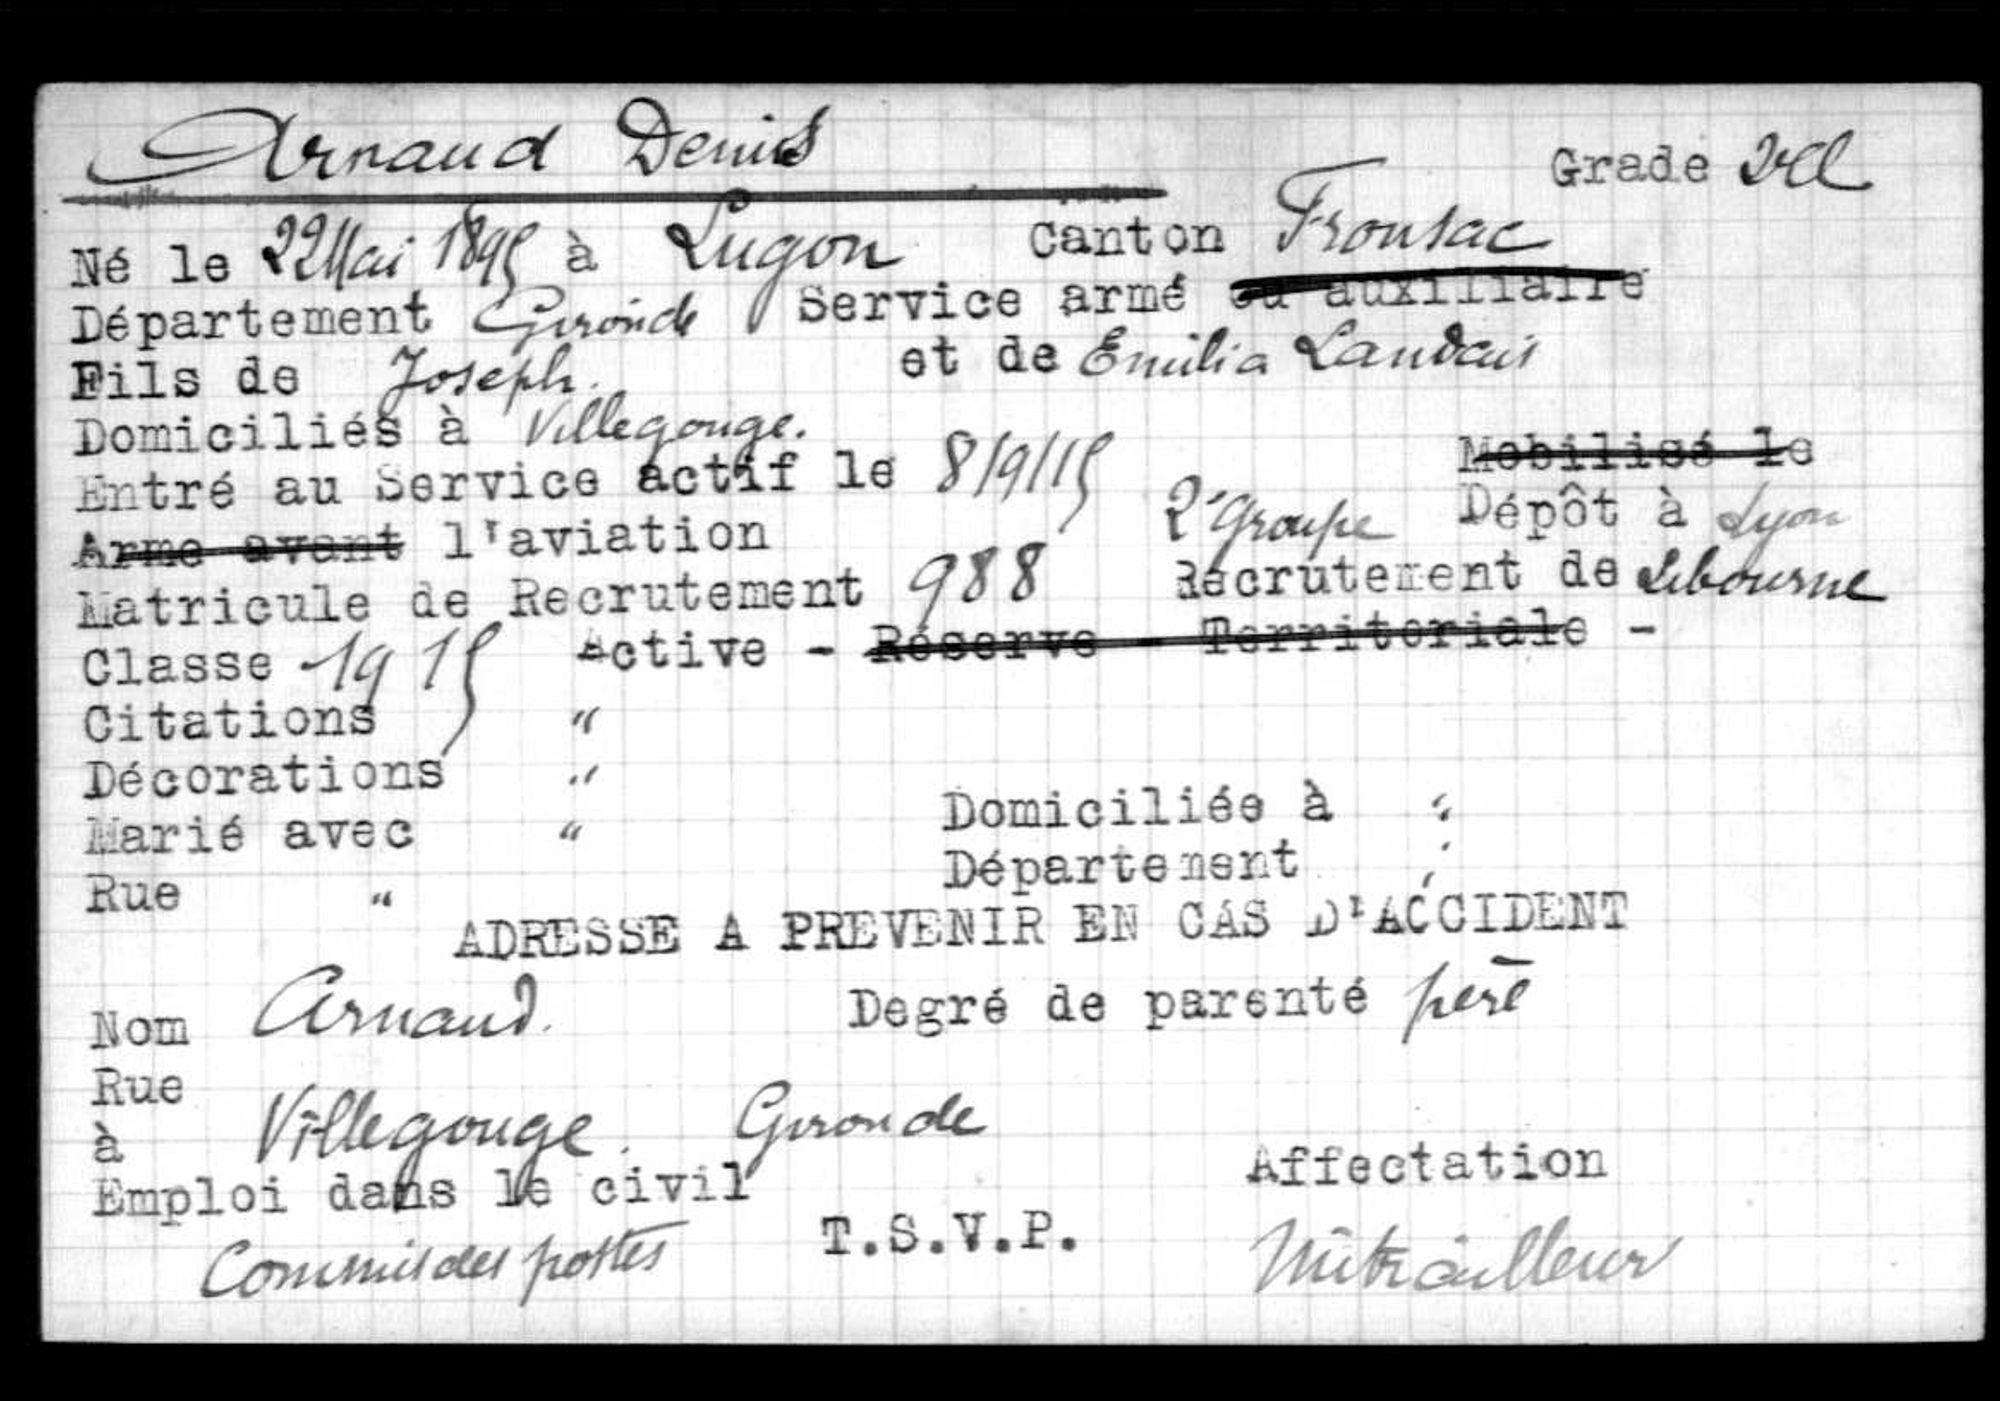 Arnaud Denis
Grade 2e Cl
Né le 22 Mai 1895 à Lugon Canton Fronsac
Département Gironde Service armé ou auxiliaire
Fils de Joseph. et de Emilia Landais
Domiciliés à Villegouge.
Entré au Service actif le 8/9/15 Mobilisé le
Arme avant l'aviation 2e Groupe Dépôt à Lyon
Matricule de Recrutement 988 Recrutement de Libourne
Classe 1915 Active - Réserve - Territoriale -
Citations "
Décorations "
Marié avec " Domiciliée à "
Département "
Rue "
ADRESSE A PREVENIR EN CAS D'ACCIDENT
Nom Arnaud. Degré de parenté père
Rue
à Villegouge. Gironde
Emploi dans le civil Affectation
Commis des postes T.S.V.P. Mitrailleur